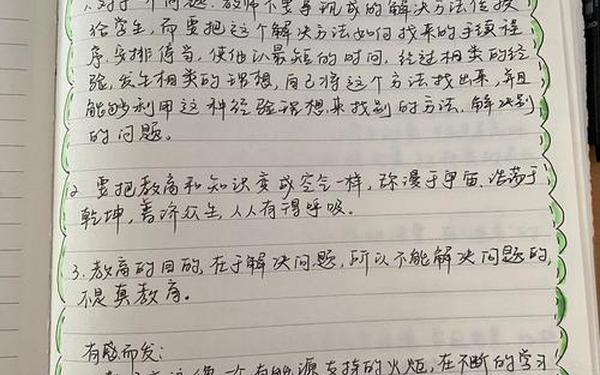 1.对于一个问题，教师不要拿现成的解决方法传授
给学生，而要把这个解决方法如何找来的手续程
序，安排停当，使他以最短的时间，经过相类的经
验，发生相类的理想，自己将这个方法找出来，并且
能够利用这种经验理想来找别的方法，解决别
的问题。
2 要把教育和知识变成空气一样，弥漫于宇宙、浩荡于
乾坤，普济众生，人人有得呼吸。
3.教育的目的，在于解决问题，所以不能解决问题的，
不是真教育。
有感而发：
像一个有能源支持的火炬，在不断的学习